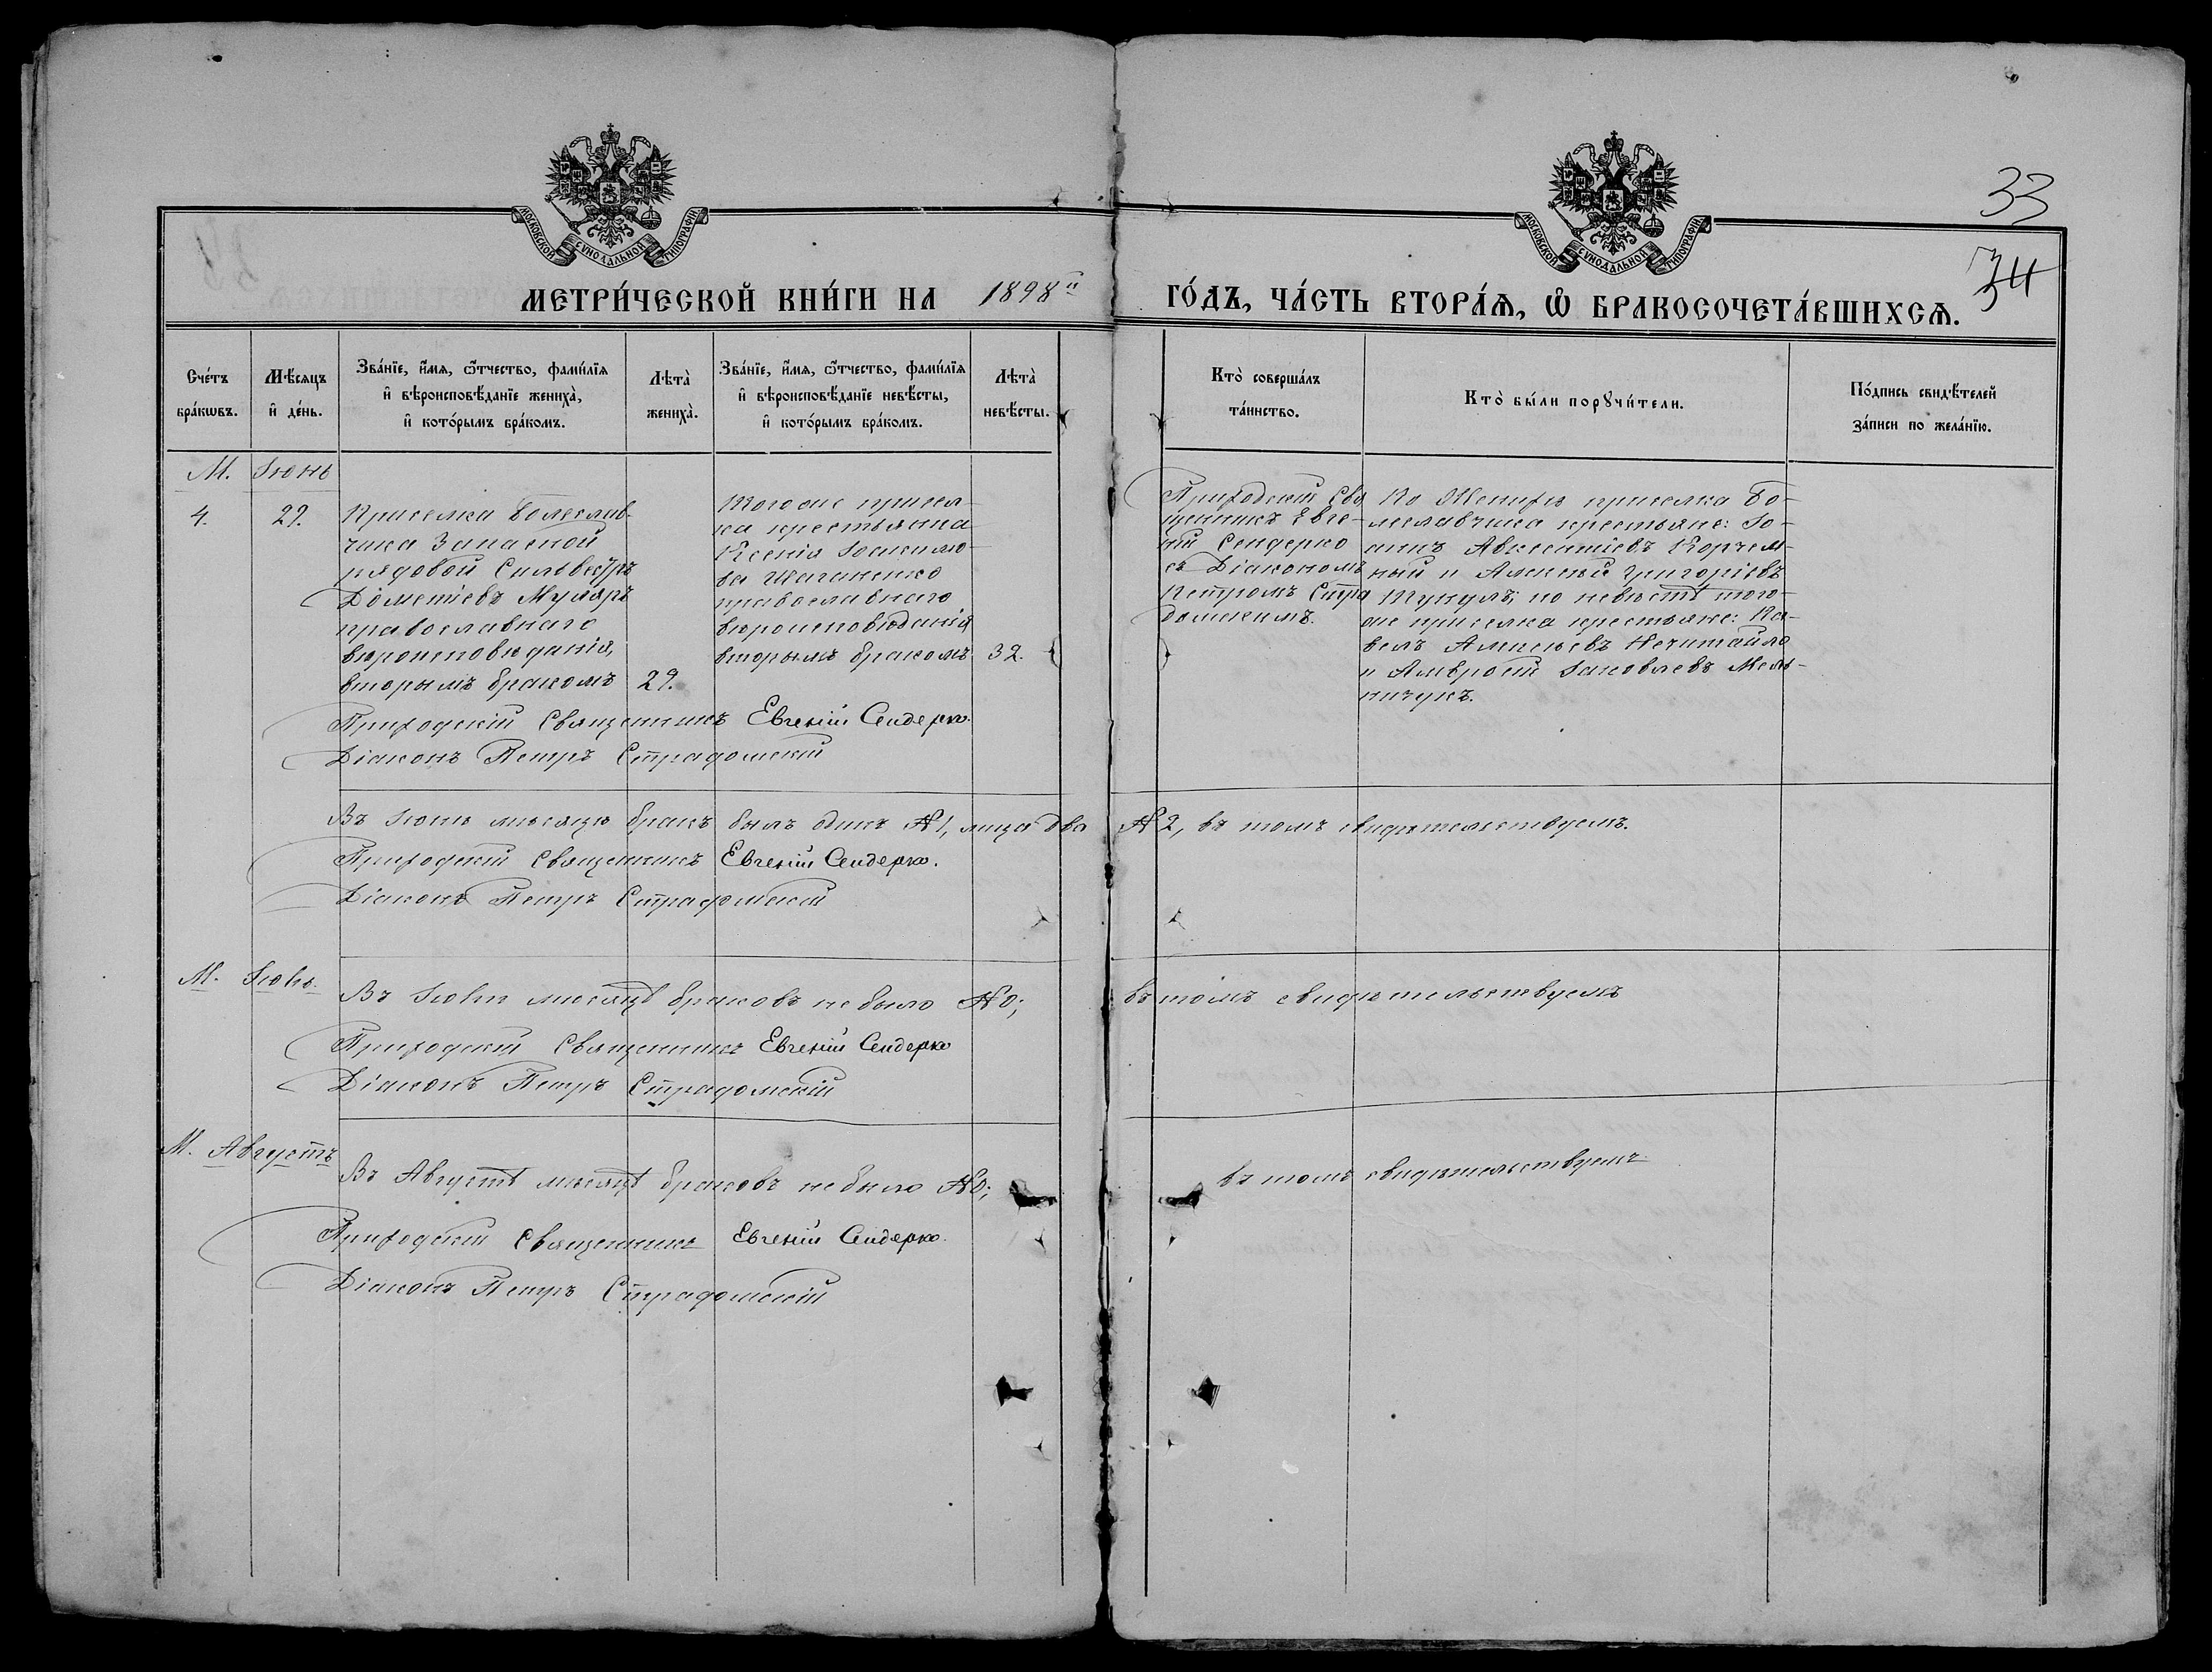 МОСКОВСКОЙ СѴНОДАЛЬНОЙ ТИПОГРАФІИ
МОСКОВСКОЙ СѴНОДАЛЬНОЙ ТИПОГРАФІИ
33
34
МЕТРИ́ЧЕСКОЙ КНИ́ГИ НА 1898й
ГО́ДЪ, ЧА́СТЬ ВТОРА́Ѧ, Ѽ БРАКОСОЧЕТА́ВШИХСѦ.
Сче́тъ
бра́кѡвъ.
Мѣ́сяцъ
и҆ де́нь.
Зва́нїе, и҆́мѧ, ѻ҆́тчество, фами́лїѧ
и҆ вѣроисповѣ́данїе жениха̀,
и҆ кото́рымъ бра́комъ.
Лѣта̀
жениха̀.
Зва́нїе, и҆́мѧ, ѻ҆́тчество, фами́лїѧ
и҆ вѣроисповѣ́данїе невѣ́сты,
и҆ кото́рымъ бра́комъ.
Лѣта̀
невѣ́сты.
Кто̀ соверша́лъ
та́инство.
Кто̀ бы́ли порꙋчи́тели.
По́дпись свидѣ́телей
за́писи по жела́нїю.
М. Іюнь
4.
29.
Приселка Болеслав-
чика Запасной
рядовой Сильвестръ
Дометіевъ Муляръ
православнаго
вѣроисповѣданія,
вторымъ бракомъ
29.
Того же присел-
ка крестьянка
Ксенія Іоакимо-
ва Шаганенко
православнаго
вѣроисповѣданія
вторымъ бракомъ
32.
Приходскій Свя
щенникъ Евге-
ній Сендерко
съ Діакономъ
Петромъ Стра
домскимъ.
По Женихѣ приселка Бо-
леславчика крестьяне: Іо-
аннъ Авксентіевъ Корчем-
ный и Алексѣй Григоріевъ
Тукулъ; по невѣстѣ того-
же приселка крестьяне: Па-
велъ Алексѣевъ Нечитайло
и Амвросій Іаковлевъ Мель-
ничукъ.
Приходскій Священникъ Евгеній Сендерко.
Діаконъ Петръ Страдомскій
Въ Іюнѣ мѣсяцѣ бракъ былъ одинъ №1, лица два №2, въ томъ свидѣтельствуемъ.
Приходскій Священникъ Евгеній Сендерко.
Діаконъ Петръ Страдомскій
М. Іюль.
Въ Іюлѣ мѣсяцѣ браковъ не было №0; въ томъ свидѣтельствуемъ
Приходскій Священникъ Евгеній Сендерко
Діаконъ Петръ Страдомскій
М. Августъ
Въ Августѣ мѣсяцѣ браковъ не было №0; въ томъ свидѣтельствуемъ
Приходскій Священникъ Евгеній Сендерко.
Діаконъ Петръ Страдомскій